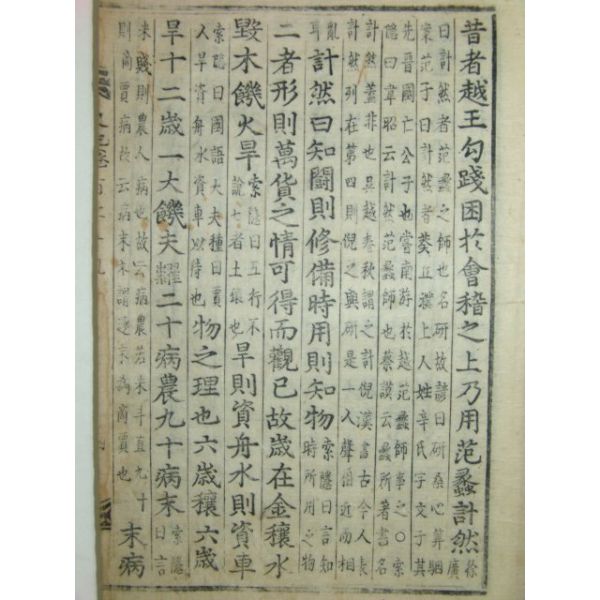 昔者越王勾踐困於會稽之上乃用范蠡計然徐廣
曰計然者范蠡之師也名研故諺曰研桑心筭駰
案范子曰計然者葵丘濮上人姓辛氏字文子其
先晉國亡公子也嘗南游於越范蠡師事之○索
隱曰韋昭云計然范蠡師也蔡謨云蠡所著書名
計然蓋非也吳越春秋謂之計倪漢書古今人表
計然列在第四則倪之與研是一人聲伯近而相
亂耳計然曰知鬪則修備時用則知物索隱曰言知時所用之物
二者形則萬貨之情可得而觀已故歲在金穰水
毀木饑火旱索隱曰五行不說七者土穰也旱則資舟水則資車
索隱曰國語大夫種曰賈人旱資舟水資車以待也物之理也六歲穰六歲
旱十二歲一大饑夫糶二十病農九十病末索隱曰言
米賤則農人病也故云病農若米斗直九十
則商賈病故云病末末謂逐末為商賈也末病